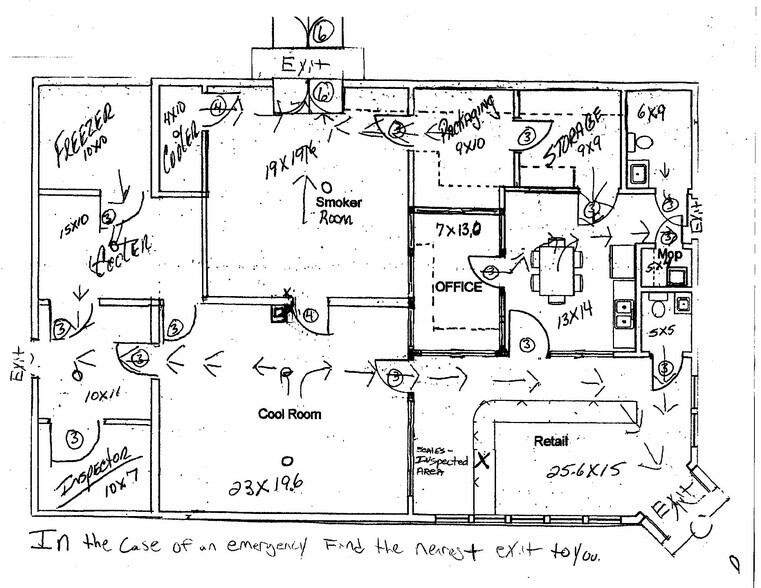 6
Exit
6
FREEZER
10X10
4X10
COOLER
4
19X19.6
Smoker
ROOM
3
PACKAGING
9X10
3
STORAGE
9X9
6X9
3
3
Exit
3
15X10
COOLER
7X13.0
OFFICE
3
13X14
3
Mop
5X5
3
3
3
4
Exit
3
10X11
Cool Room
3
3
INSPECTOR
10X7
23X19.6
SCALES-
INSPECTED
AREA
X
Retail
25.6X15
EXIT
In the case of an emergency Find the nearest exit to you.